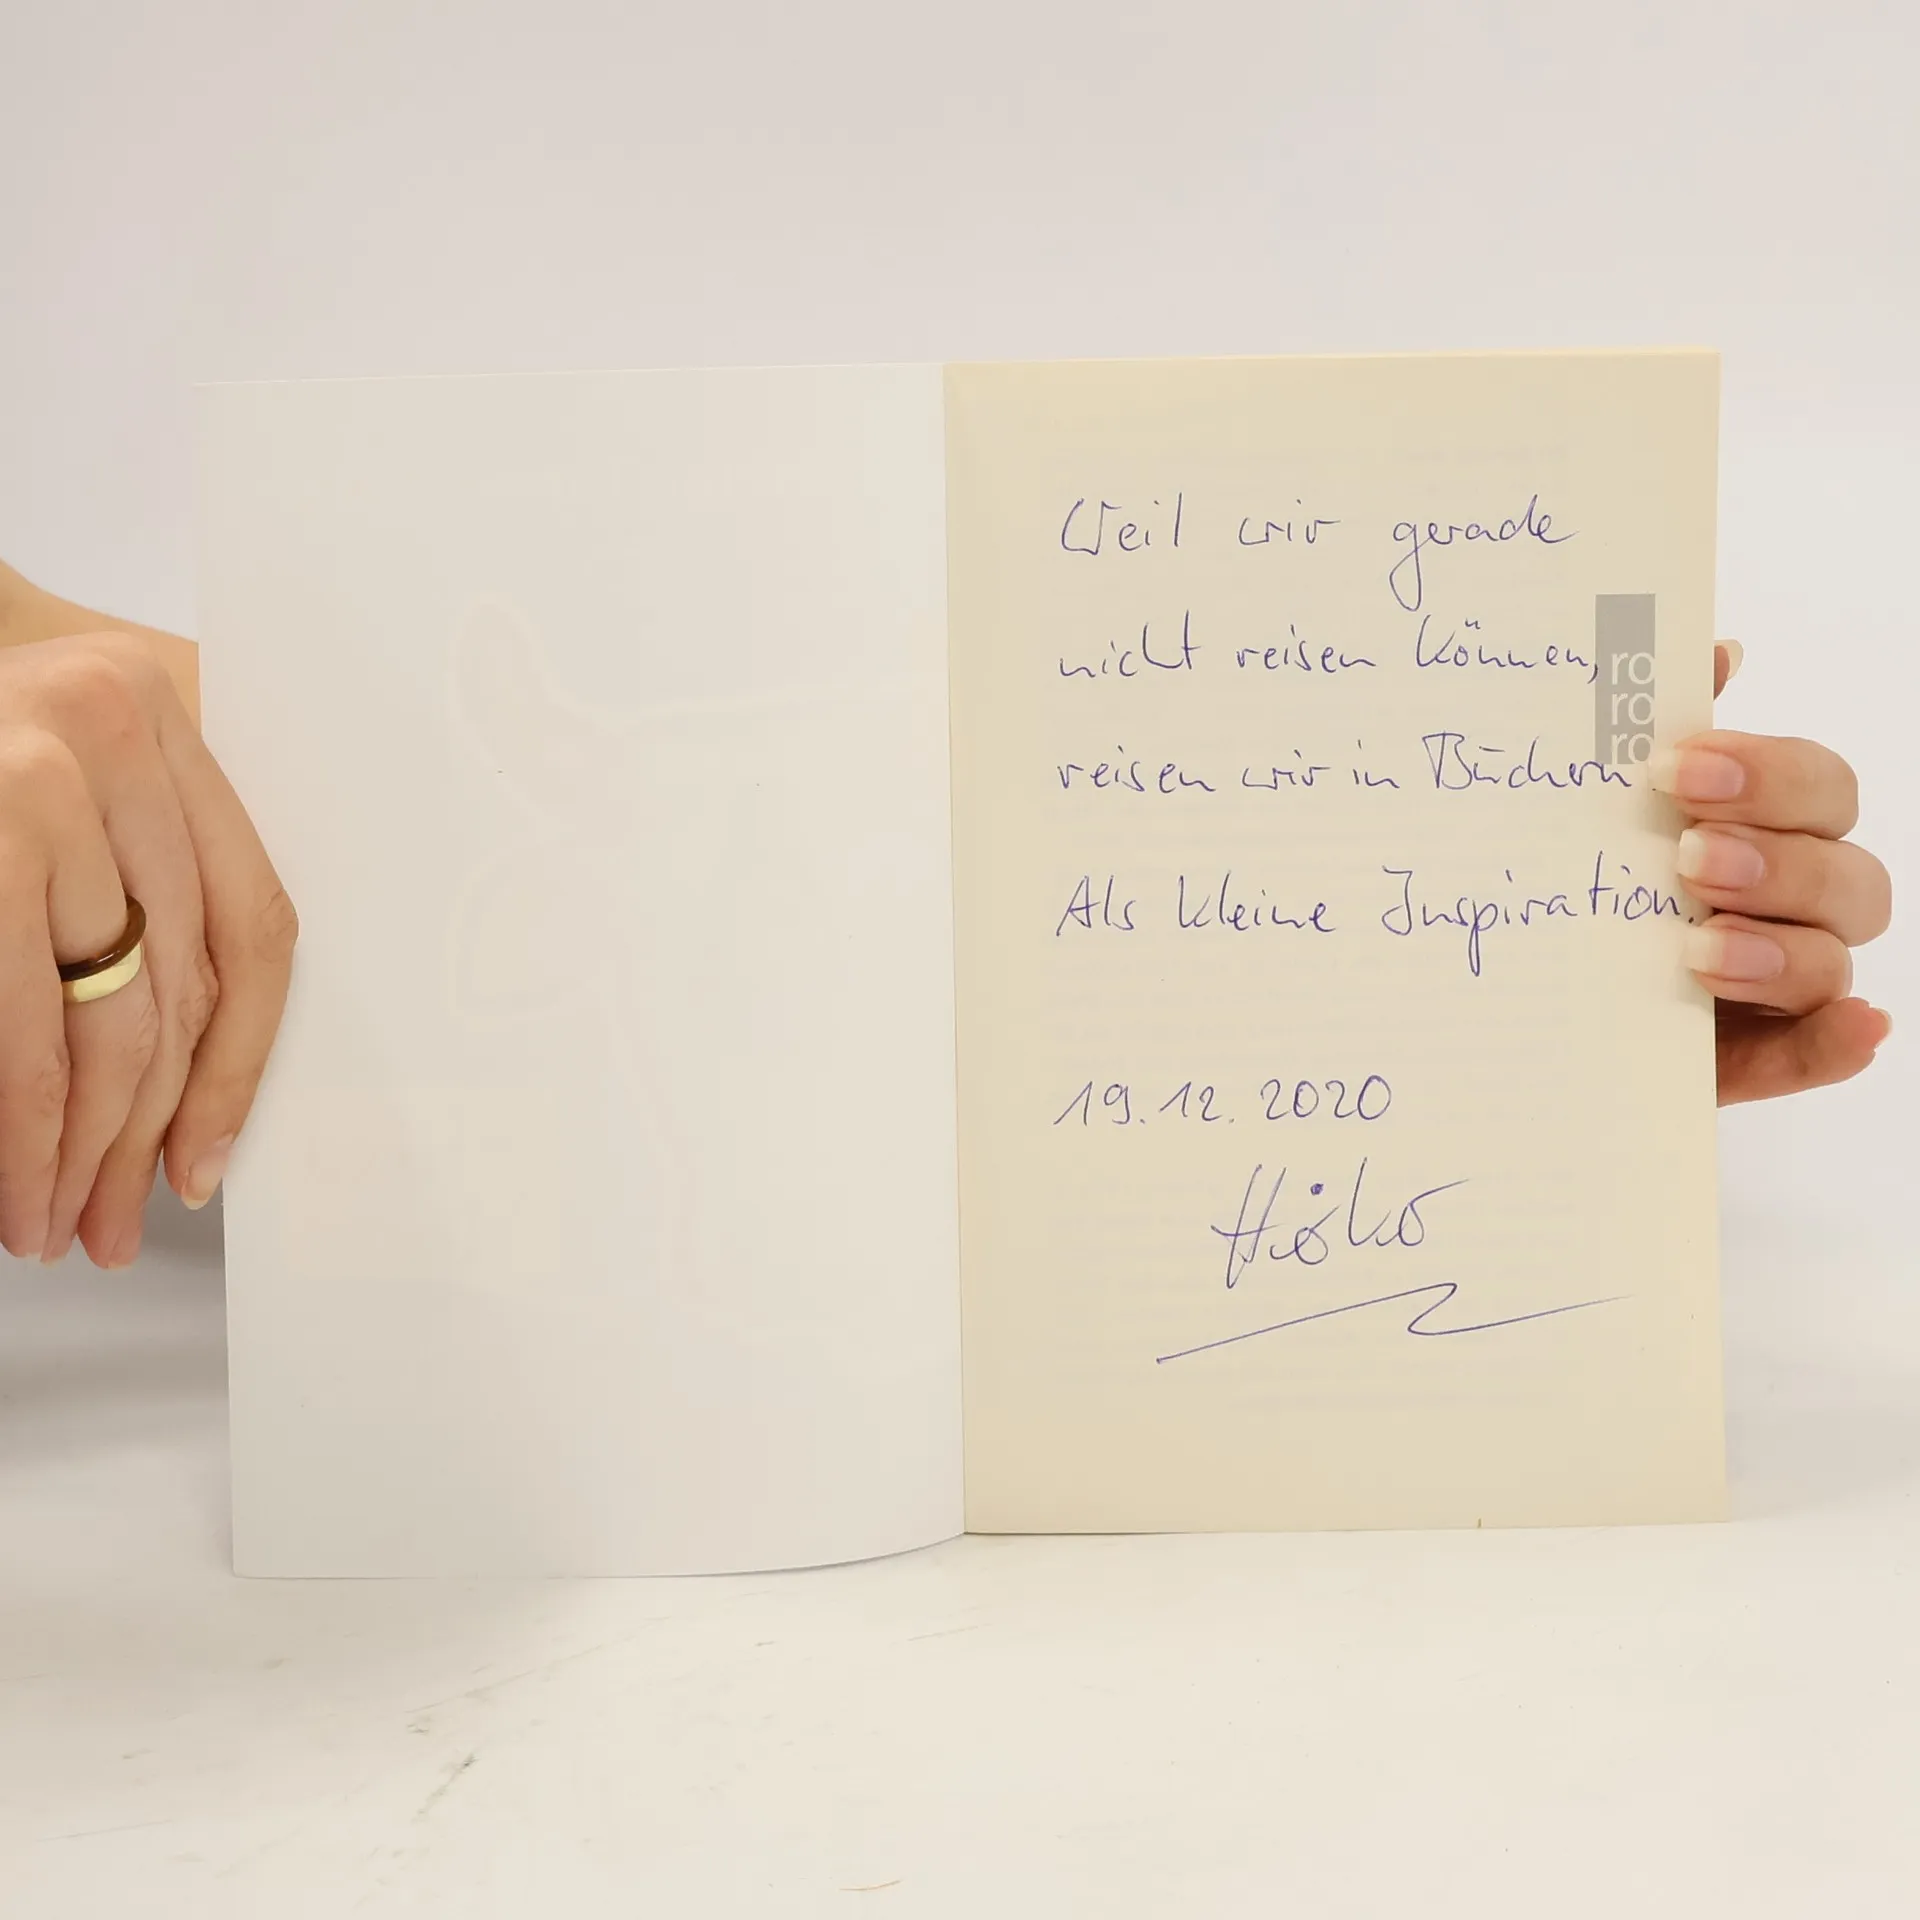 Weil wir gerade
nicht reisen können,
ro
ro
ro
reisen wir in Büchern.
Als kleine Inspiration.
19.12.2020